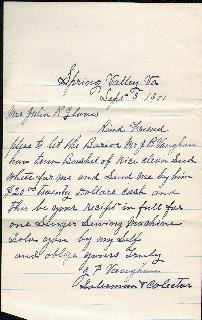 Spring Valley Va
Sept 3 1901
Mrs Julia R
Kind Friend
pleas to let the Barior Mr J B Vaughan
have tenn Bushel of nice clean Seed
wheat for me and Send me by him
$20.00 twenty Dollars cash and
this be your recipt in full for
one Singer Sewing Machine
Sold you by my Self
and oblige yours truly
Vaughan
Salesman & Colector